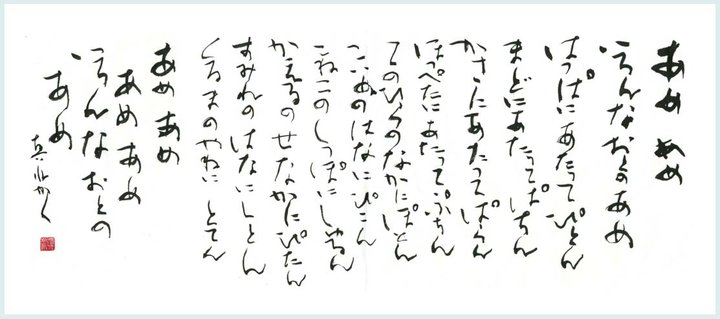 あめ あめ
いろんなおとのあめ
はっぱにあたってぴとん
まどにあたってぱちん
かさにあたってぱらん
ほっぺたにあたってぷちん
てのひらのなかにぽとん
こいぬのはなにぴこん
こねこのしっぽにしゅるん
かえるのせなかにぴたん
すみれのはなにしとん
くるまのやねにとてん
あめ あめ
あめ あめ
いろんなおとの
あめ